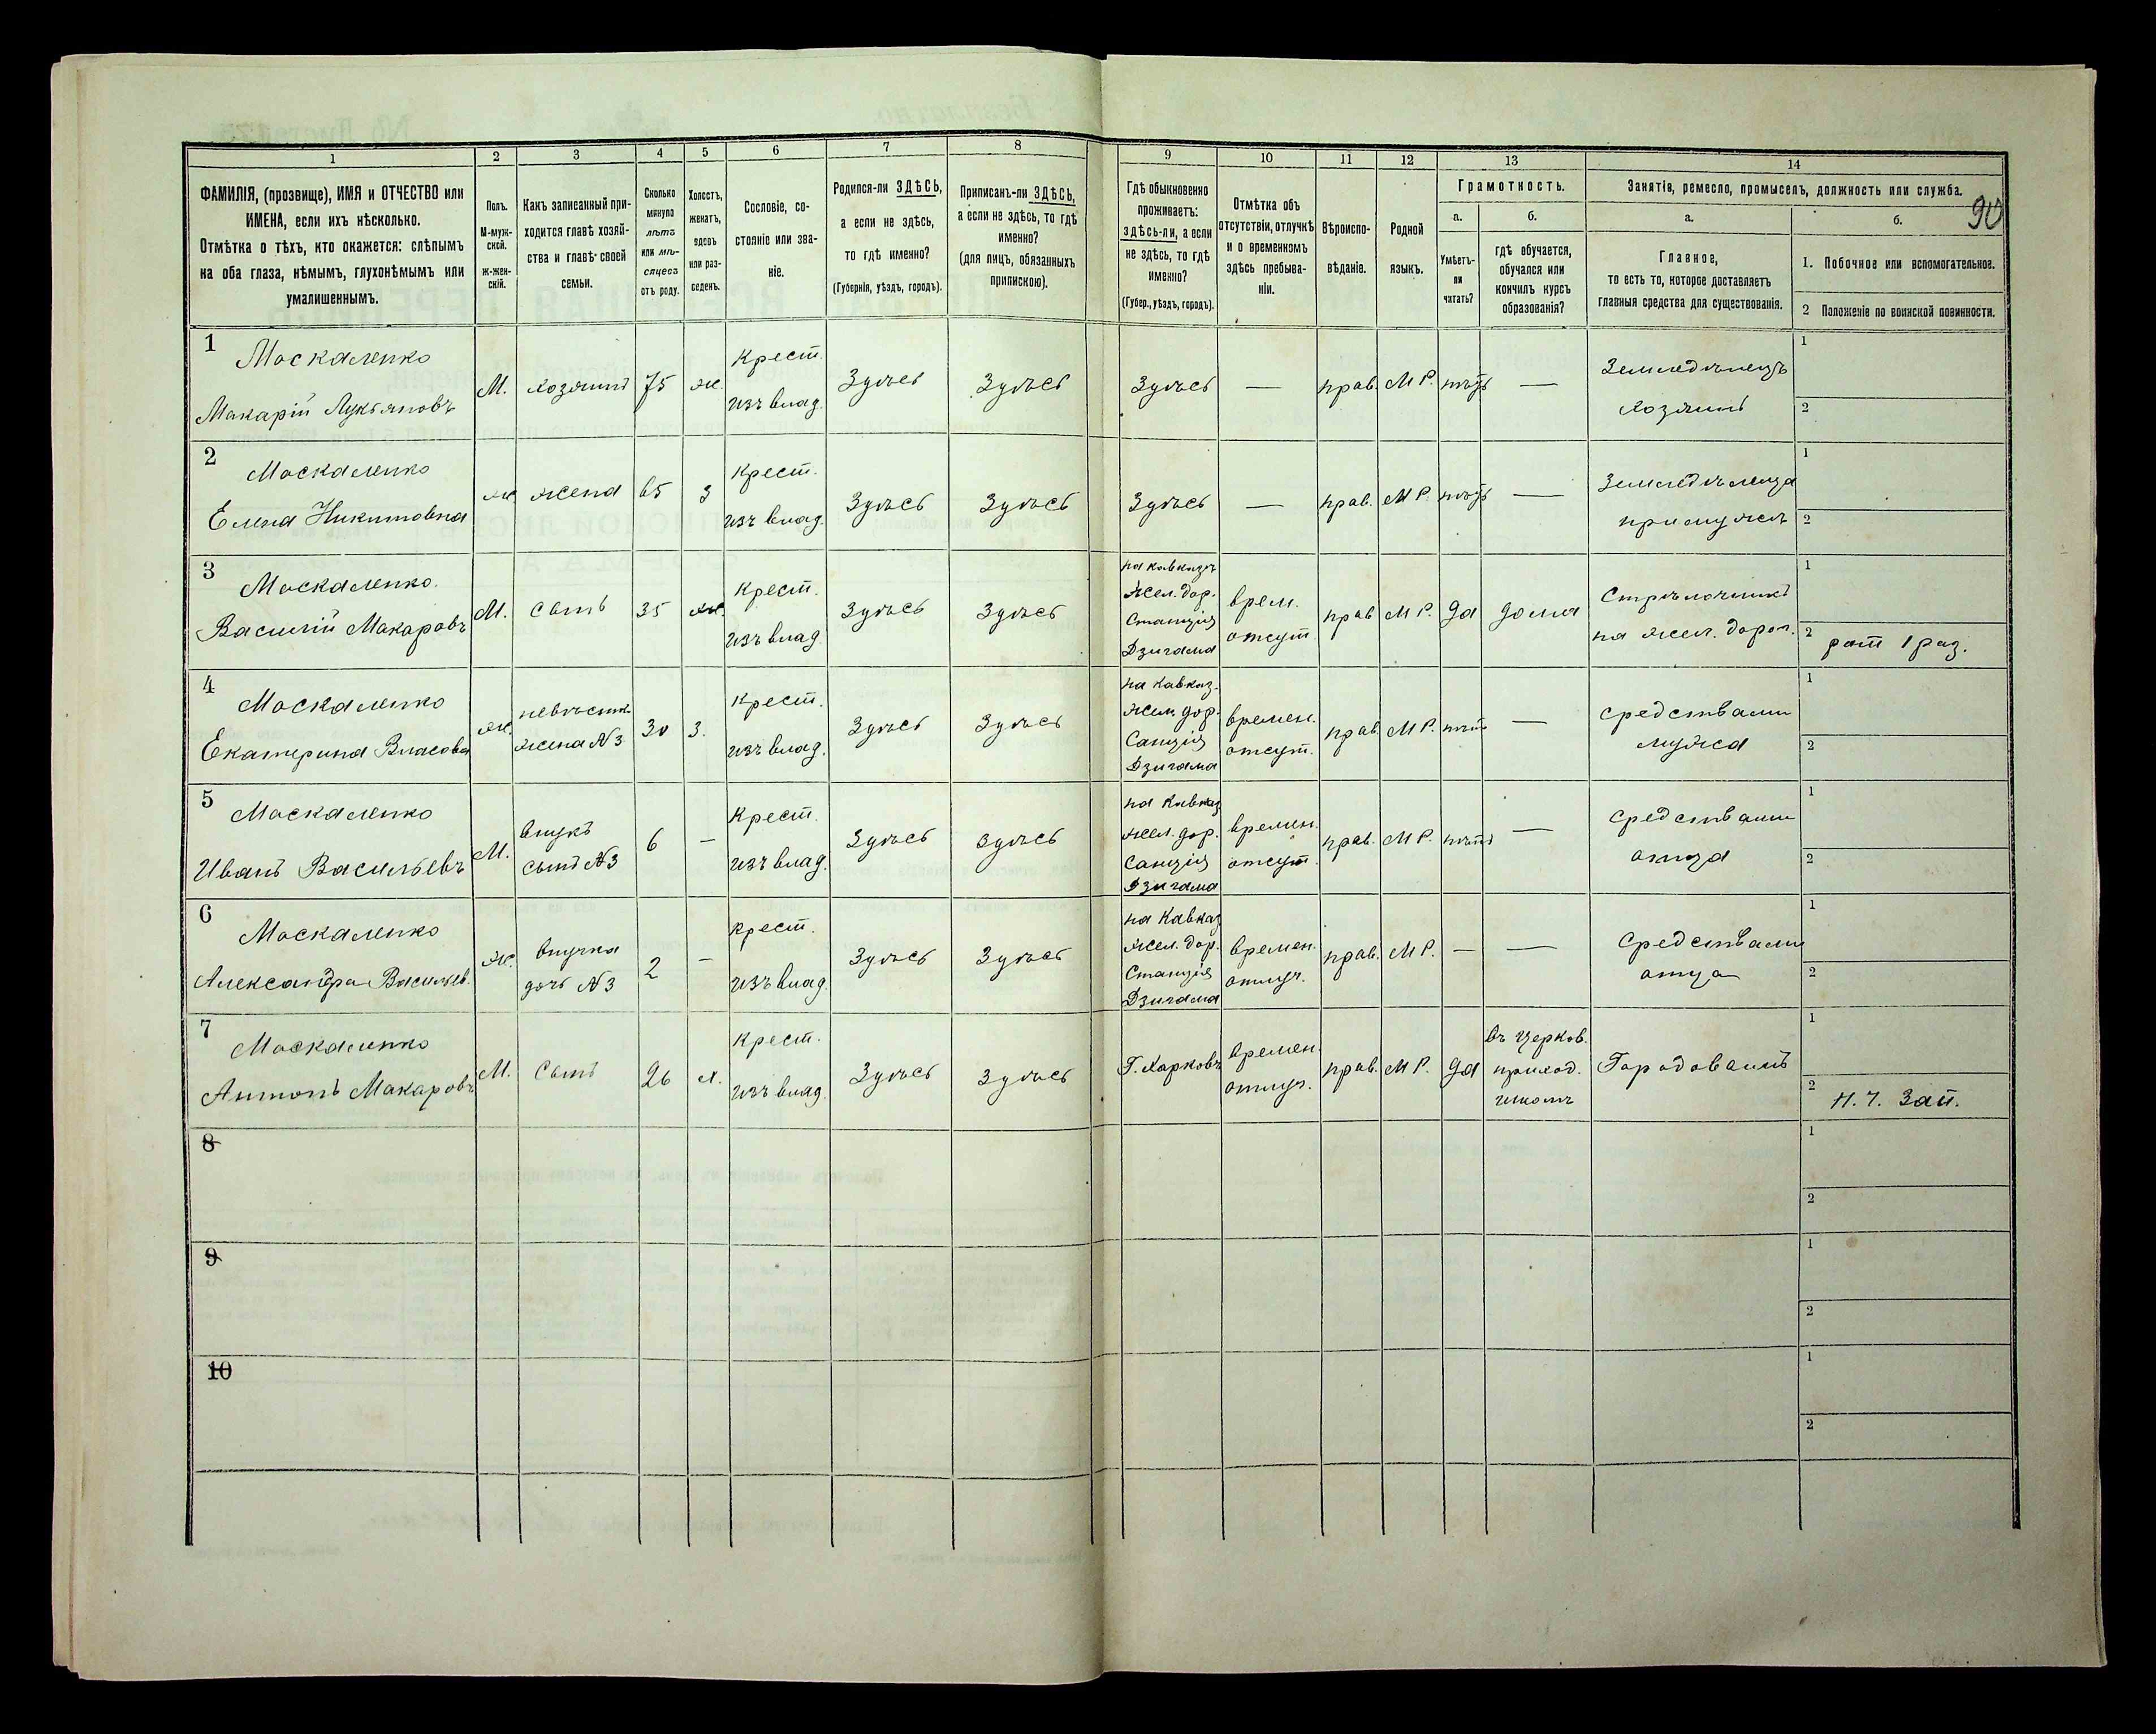 90
1 2 3 4 5 6 7 8 9 10 11 12 13 14
ФАМИЛІЯ, (прозвище), ИМЯ и ОТЧЕСТВО или
ИМЕНА, если ихъ нѣсколько.
Отмѣтка о тѣхъ, кто окажется: слѣпымъ
на оба глаза, нѣмымъ, глухонѣмымъ или
умалишеннымъ.
Полъ.
М-муж-
ской.
ж-жен-
скій.
Какъ записанный при-
ходится главѣ хозяй-
ства и главѣ своей
семьи.
Сколько
минуло
лѣтъ
или мѣ-
сяцевъ
отъ роду.
Холостъ,
женатъ,
вдовъ
или раз-
веденъ.
Сословіе, со-
стояніе или зва-
ніе.
Родился-ли ЗДѢСЬ,
а если не здѣсь,
то гдѣ именно?
(Губернія, уѣздъ, городъ).
Приписанъ-ли ЗДѢСЬ,
а если не здѣсь, то гдѣ
именно?
(для лицъ, обязанныхъ
припискою).
Гдѣ обыкновенно
проживаетъ:
здѣсь-ли, а если
не здѣсь, то гдѣ
именно?
(Губер., уѣздъ, городъ).
Отмѣтка объ
отсутствіи, отлучкѣ
и о временномъ
здѣсь пребыва-
ніи.
Вѣроиспо-
вѣданіе.
Родной
языкъ.
Грамотность.
а.
Умѣетъ-
ли
читать?
б.
гдѣ обучается,
обучался или
кончилъ курсъ
образованія?
Занятія, ремесло, промыселъ, должность или служба.
а.
Главное,
то есть то, которое доставляетъ
главныя средства для существованія.
б.
1. Побочное или вспомогательное.
2 Положеніе по воинской повинности.
1
Москаленко
Макарій Лукьяновъ
М.
хозяинъ
75
ж.
Крест.
изъ влад.
Здѣсь
Здѣсь
Здѣсь
—
прав.
М Р.
нѣтъ
—
Земледѣлецъ
хозяинъ
1
2
2
Москаленко
Елена Никитовна
ж
жена
65
з
Крест.
изъ влад.
Здѣсь
Здѣсь
Здѣсь
—
прав.
М Р.
нѣтъ
—
Земледѣлица
при мужѣ
1
2
3
Москаленко.
Василій Макаровъ
М.
сынъ
35
ж.
Крест.
изъ влад.
Здѣсь
Здѣсь
на Кавказѣ
Жел. дор.
Станція
Дзигама
врем.
отсут.
прав
М Р.
да
дома
Стрѣлочникъ
на жел. дорог.
1
2 рат 1 раз.
4
Москаленко
Екатерина Власова
ж.
невѣстка
жена №3
30
з.
Крест.
изъ влад.
Здѣсь
Здѣсь
на Кавказ.
жел. дор.
Санція
Дзигама
времен.
отсут.
прав.
М Р.
нѣтъ
—
средствами
мужа
1
2
5
Москаленко
Иванъ Васильевъ
М.
внукъ
сынъ №3
6
—
Крест.
изъ влад.
Здѣсь
Здѣсь
на Кавказ
жел. дор.
Санція
Дзигама
времен.
отсут.
прав.
М Р.
нѣтъ
—
средствами
отца
1
2
6
Москаленко
Александра Васильев.
ж.
внучка
дочь №3
2
—
крест.
изъ влад.
Здѣсь
Здѣсь
на Кавказ
жел. дор.
Станція
Дзигама
времен.
отлуч.
прав.
М Р.
—
—
Средствами
отца
1
2
7
Москаленко
Антонъ Макаровъ
М.
Сынъ
26
х.
Крест.
изъ влад.
Здѣсь
Здѣсь
Г. Харковъ
времен.
отлуч.
прав.
М Р.
да
въ церков.
приход.
школѣ
Городовымъ
1
2 Н. Ч. Зап.
8
1
2
9
1
2
10
1
2